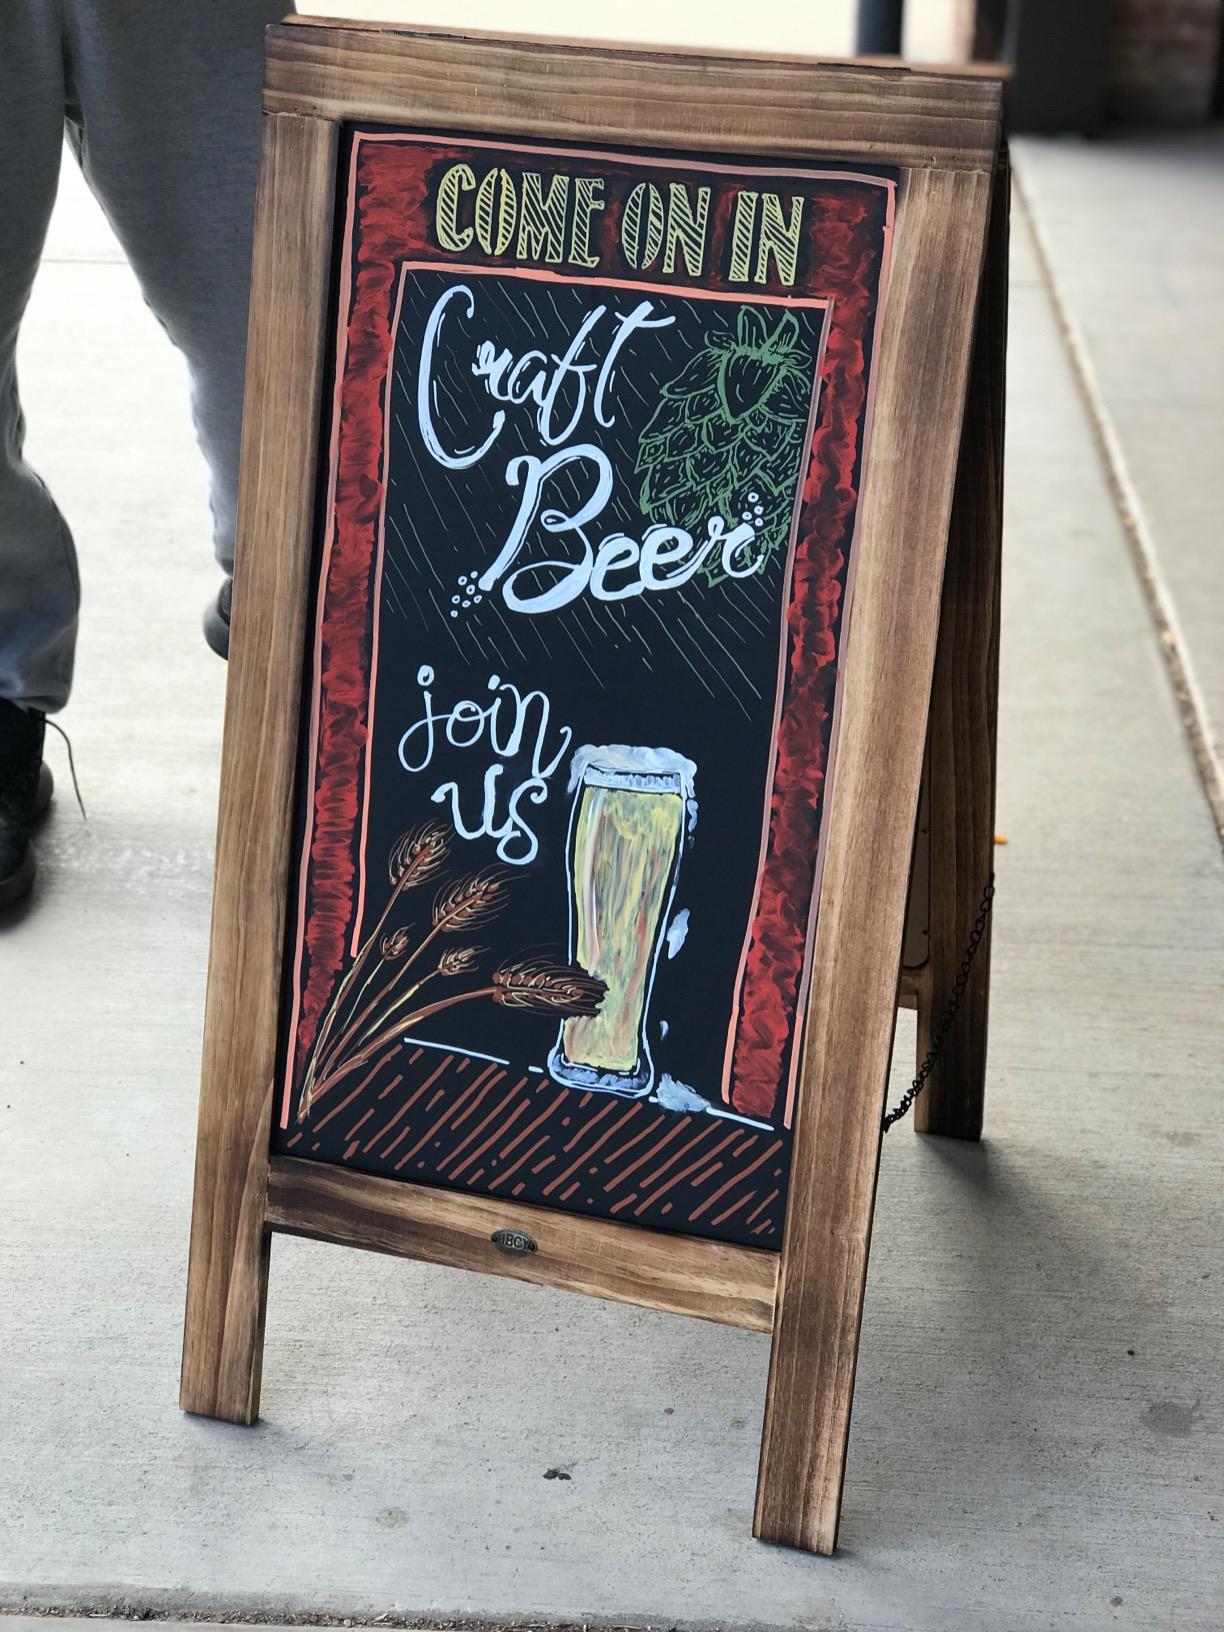 COME ON IN
Craft
Beer
join
us
HBCY